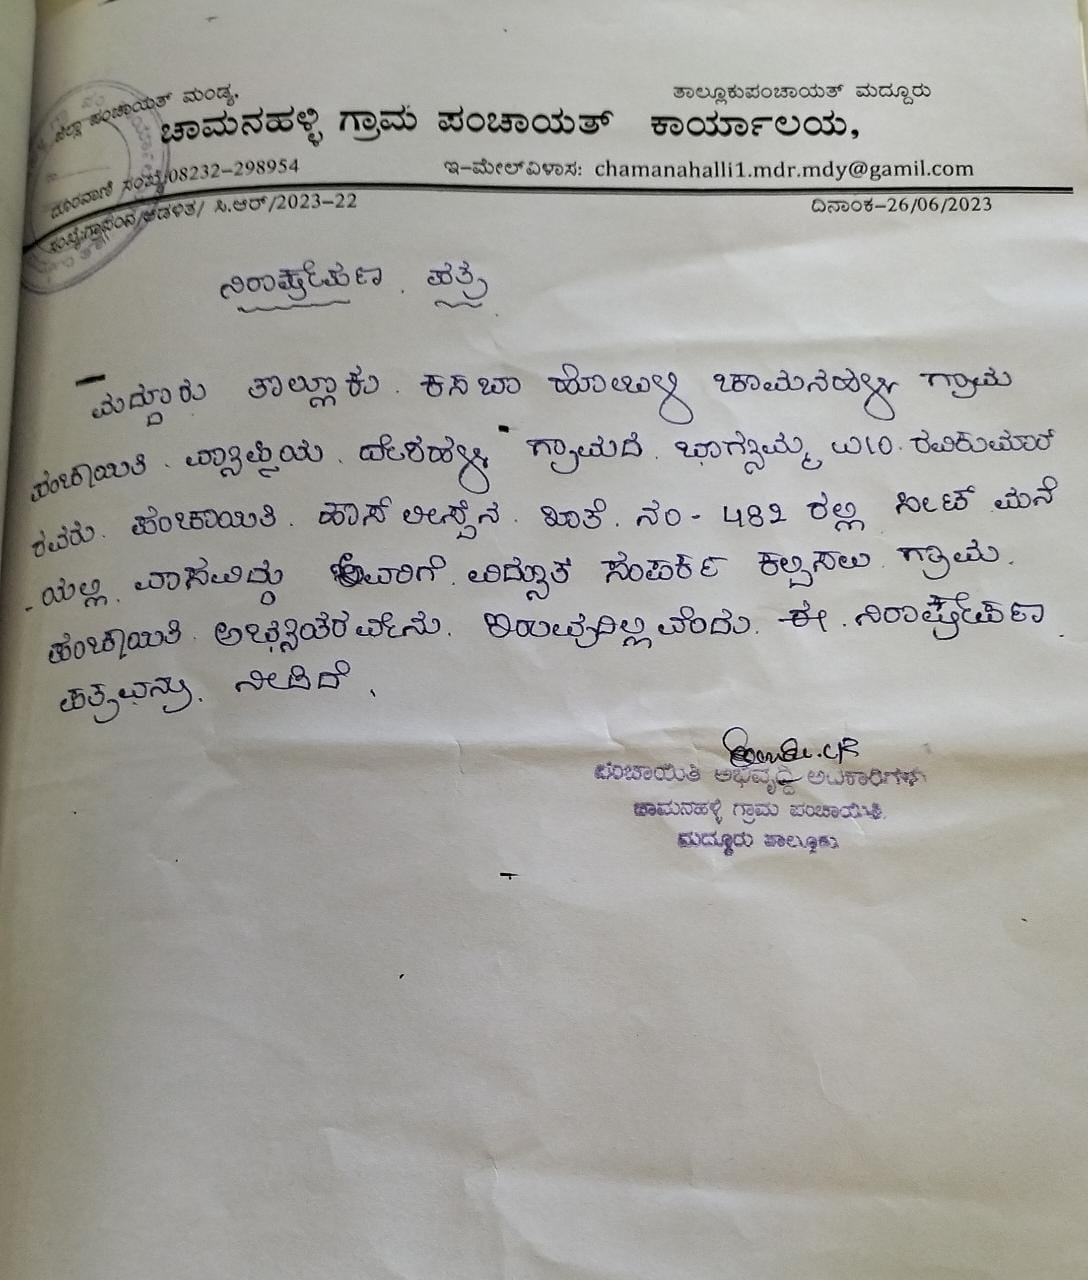 ಜಿಲ್ಲಾ ಪಂಚಾಯತ್ ಮಂಡ್ಯ, ತಾಲ್ಲೂಕುಪಂಚಾಯತ್ ಮದ್ದೂರು
ಚಾಮನಹಳ್ಳಿ ಗ್ರಾಮ ಪಂಚಾಯತ್ ಕಾರ್ಯಾಲಯ,
ದೂರವಾಣಿ ಸಂಖ್ಯೆ/08232-298954 ಇ-ಮೇಲ್‌ವಿಳಾಸ: chamanahalli1.mdr.mdy@gamil.com
ಸಂಖ್ಯೆ:ಗ್ರಾಪಂಚ/ಆಡಳಿತ/ ಸಿ.ಆರ್/2023-22 ದಿನಾಂಕ-26/06/2023
ನಿರಾಕ್ಷೇಪಣಾ ಪತ್ರ
ಮದ್ದೂರು ತಾಲ್ಲೂಕು. ಕಸಬಾ ಹೋಬಳಿ ಚಾಮನಹಳ್ಳಿ ಗ್ರಾಮ
ಪಂಚಾಯಿತಿ ವ್ಯಾಪ್ತಿಯ ದೇಶಹಳ್ಳಿ ಗ್ರಾಮದ ಭಾಗ್ಯಮ್ಮ W/O ರವಿಕುಮಾರ್
ರವರು ಪಂಚಾಯಿತಿ. ಹಾಸ್ ಲೀಸ್ಟಿನ ಖಾತೆ ನಂ- 482 ರಲ್ಲಿ ಸೀಟ್ ಮನೆ
ಯಲ್ಲಿ ವಾಸವಿದ್ದು ಇವರಿಗೆ ವಿದ್ಯುತ್ ಸಂಪರ್ಕ ಕಲ್ಪಿಸಲು ಗ್ರಾಮ
ಪಂಚಾಯಿತಿ ಅಭ್ಯಂತರವೇನು ಇರುವುದಿಲ್ಲವೆಂದು ಈ ನಿರಾಕ್ಷೇಪಣಾ
ಪತ್ರವನ್ನು ನೀಡಿದೆ.
ಪಂಚಾಯಿತಿ ಅಭಿವೃದ್ಧಿ ಅಧಿಕಾರಿಗಳು
ಚಾಮನಹಳ್ಳಿ ಗ್ರಾಮ ಪಂಚಾಯಿತಿ
ಮದ್ದೂರು ತಾಲ್ಲೂಕು